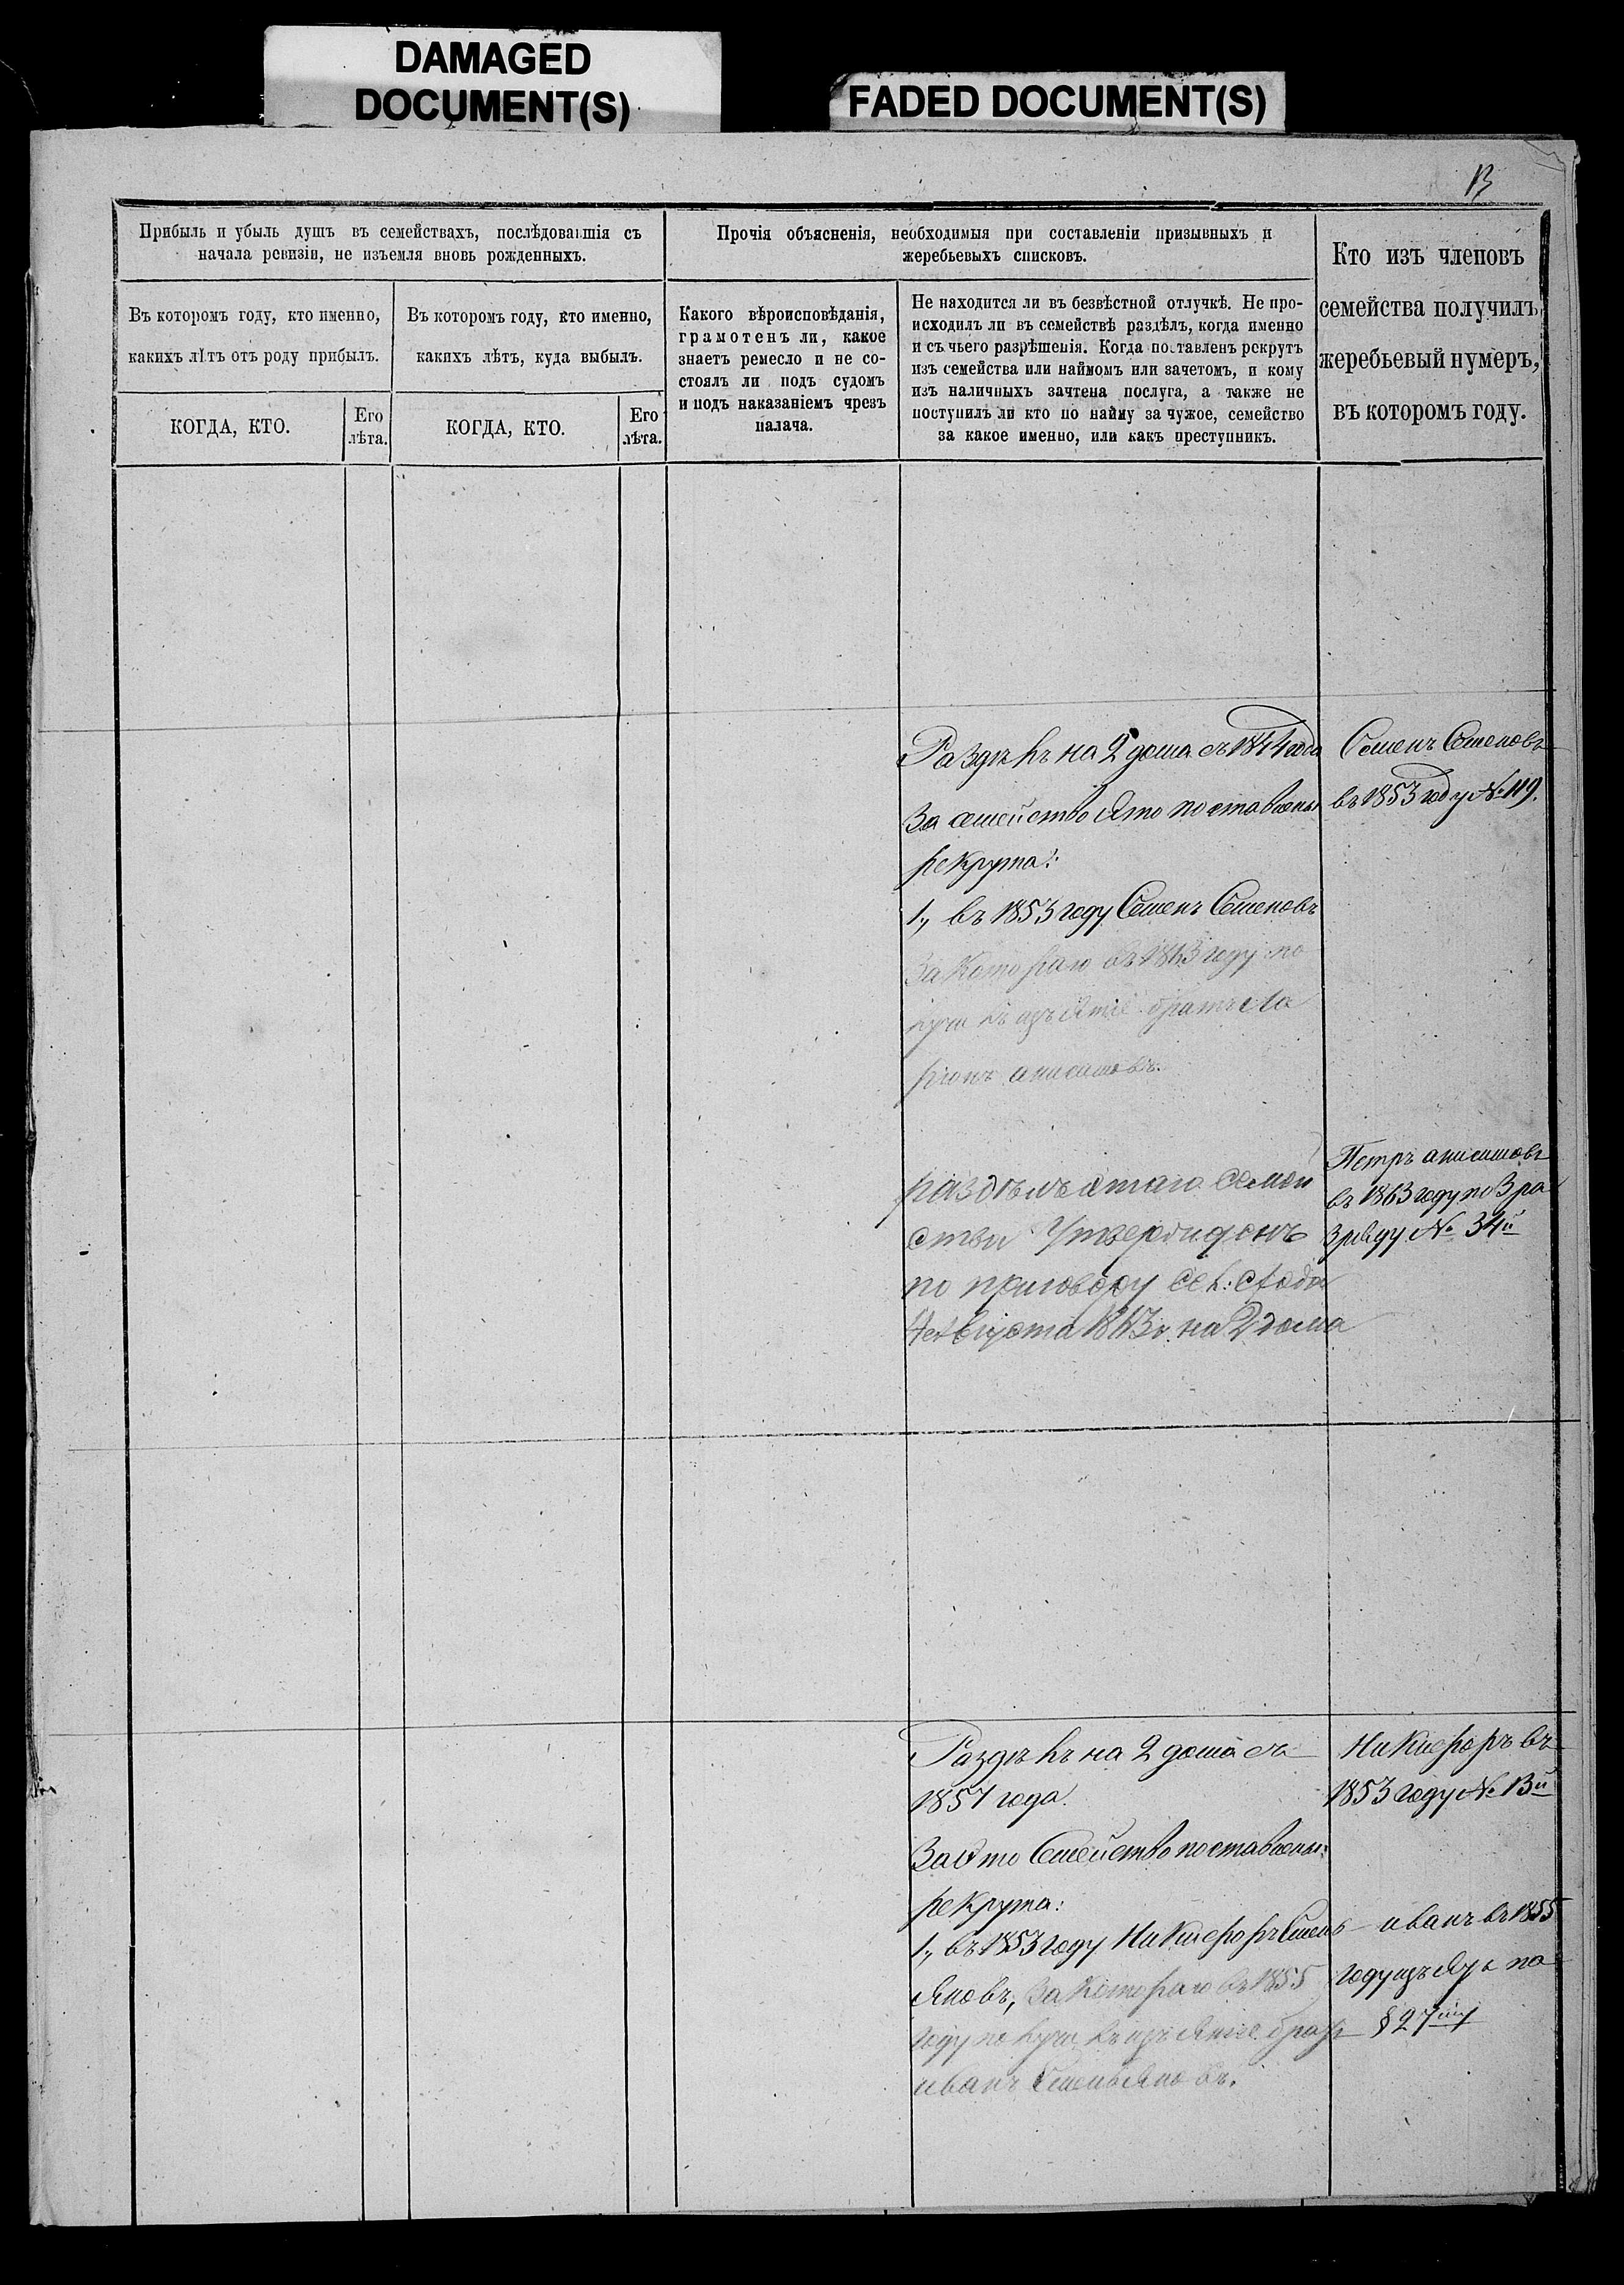 DAMAGED
DOCUMENT(S)
FADED DOCUMENT(S)
13
Прибыль и убыль душъ въ семействахъ, послѣдовавшія съ
начала ревизіи, не изъемля вновь рожденныхъ.
Въ которомъ году, кто именно,
какихъ лѣтъ отъ роду прибылъ.
КОГДА, КТО.
Его
лѣта.
Въ которомъ году, кто именно,
какихъ лѣтъ, куда выбылъ.
КОГДА, КТО.
Его
лѣта.
Прочія объясненія, необходимыя при составленіи призывныхъ и
жеребьевыхъ списковъ.
Какого вѣроисповѣданія,
грамотенъ ли, какое
знаетъ ремесло и не со-
стоялъ ли подъ судомъ
и подъ наказаніемъ чрезъ
палача.
Не находится ли въ безвѣстной отлучкѣ. Не про-
исходилъ ли въ семействѣ раздѣлъ, когда именно
и съ чьего разрѣшенія. Когда поставленъ рекрутъ
изъ семейства или наймомъ или зачетомъ, и кому
изъ наличныхъ зачтена послуга, а также не
поступилъ ли кто по найму за чужое, семейство
за какое именно, или какъ преступникъ.
Кто изъ членовъ
семейства получилъ
жеребьевый нумеръ,
въ которомъ году.
Раздѣлъ на 2 дома съ года
За семейство это поставлены
рекрута:
1., въ 1853 году Семенъ Семеновъ
за котораго въ 1863 году по
лучилъ изъятіе братъ Ла
ріонъ анисимовъ.
Семенъ Семеновъ
въ 1853 году № 119.
раздѣлъ этаго семей
ства
по приговору Сел: схода
Августа 1863 г. на 2 дома
Петръ анисимовъ
въ 1863 году по 3 ра
зряду № 34й
Раздѣлъ на 2 дома съ
1851 года.
За это Семейство поставлены
рекрута:
1., въ 1853 году Никифоръ Емель
яновъ, за котораго въ 1855
году получилъ изъятіе братъ
иванъ Емельяновъ.
Никифоръ въ
1853 году № 13й
иванъ въ 1855
году изъятъ по
§ 27му